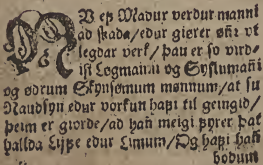 NV ef Madur verdur manni
ad skada/ edur giører ønr vt
legdar verk/ þau er so vird-
ist Logmanni og Syslumanni
og ødrum Skynsømum mønnum/ at su
Naudsyn edur vorkun hafi til geingid/
þeim er giorde/ ad han meigi fyrer þat
hallda Lijfe edur Limum/ Og hafi han
bodum